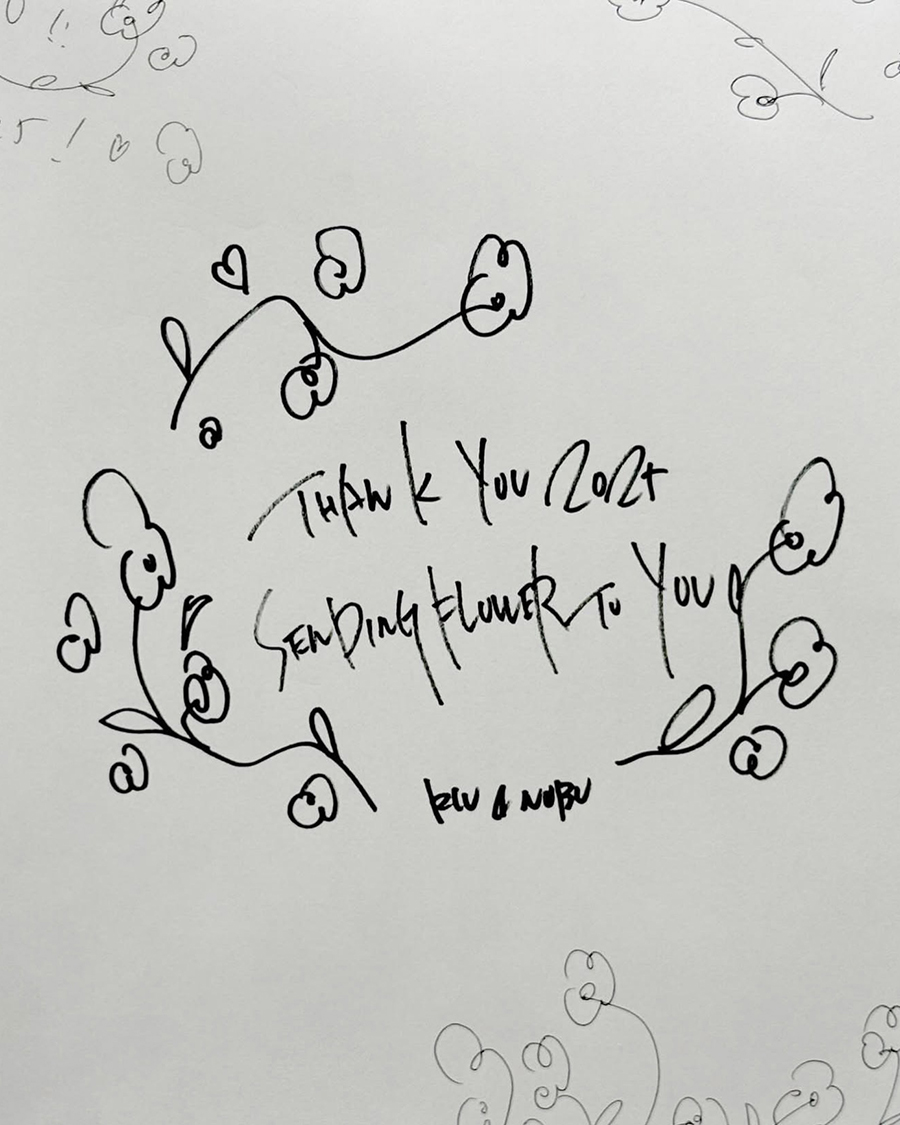 THANK YOU 2024
SENDING FLOWER TO YOU
& NOBU